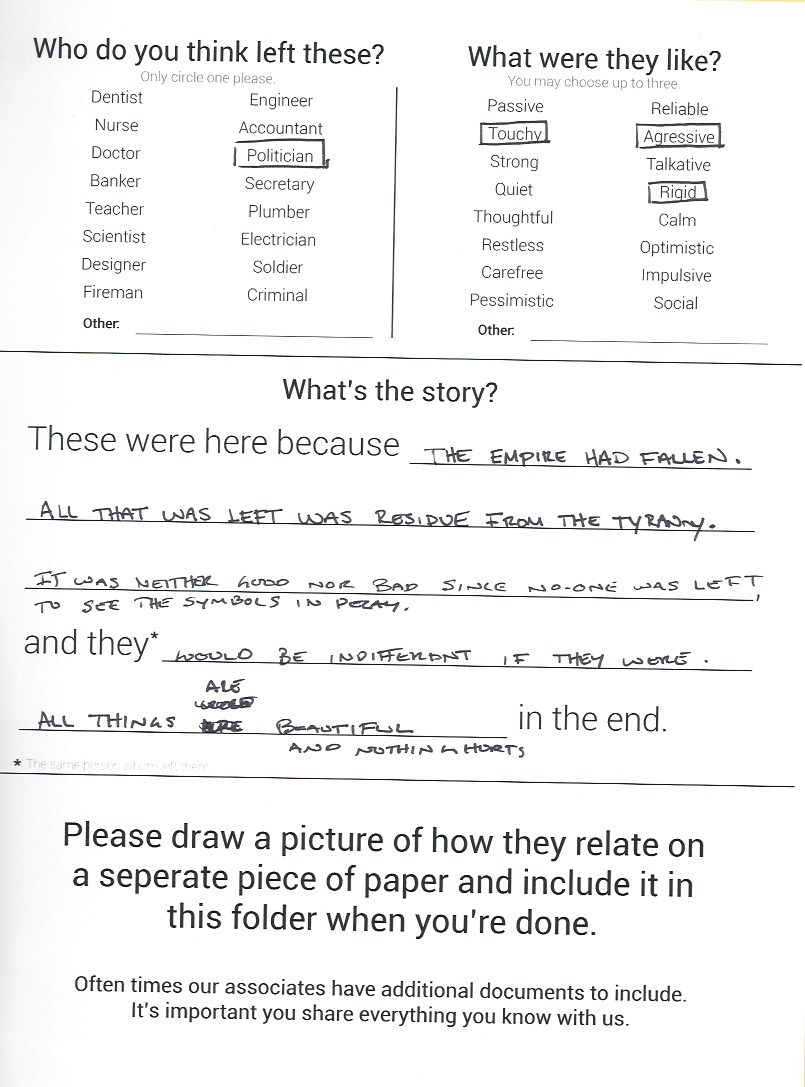 Who do you think left these?
Only circle one please.
Dentist
Nurse
Doctor
Banker
Teacher
Scientist
Designer
Fireman
Engineer
Accountant
Politician
Secretary
Plumber
Electrician
Soldier
Criminal
Other:
What were they like?
You may choose up to three.
Passive
Touchy
Strong
Quiet
Thoughtful
Restless
Carefree
Pessimistic
Reliable
Agressive
Talkative
Rigid
Calm
Optimistic
Impulsive
Social
Other:
What's the story?
These were here because THE EMPIRE HAD FALLEN.
ALL THAT WAS LEFT WAS RESIDUE FROM THE TYRANNY.
IT WAS NEITHER GOOD NOR BAD SINCE NO-ONE WAS LEFT,
TO SEE THE SYMBOLS IN DECAY.
and they* WOULD BE INDIFFERENT IF THEY WERE.
ALL THINGS ARE BEAUTIFUL in the end.
AND NOTHING HURTS
* The same person whom left them
Please draw a picture of how they relate on
a seperate piece of paper and include it in
this folder when you're done.
Often times our associates have additional documents to include.
It's important you share everything you know with us.